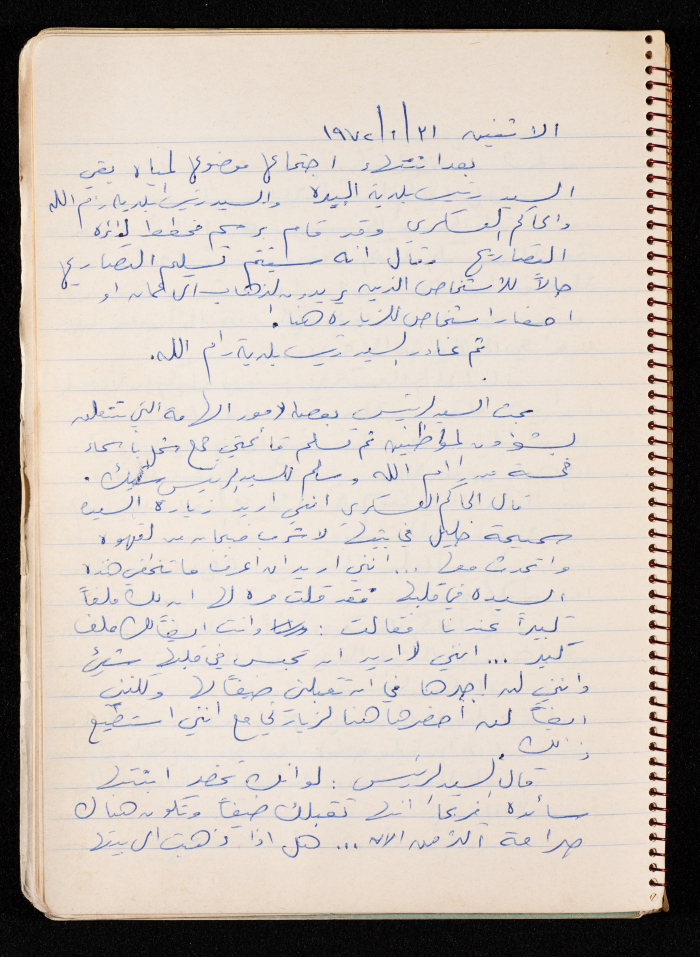 الاثنين ٣١/١/١٩٧٢
بعد انتهاء اجتماع موضوع المياه بقي
السيد رئيس بلدية البيرة والسيد رئيس بلدية رام الله
والحاكم العسكري وقد قام برسم مخطط لدائرة
التصاريح وقال انه سيتم تسليم التصاريح
حالاً للأشخاص الذين يريدون الذهاب الى عمان او
احضار اشخاص للزيارة هنا.
ثم غادر السيد رئيس بلدية رام الله.
بحث السيد الرئيس بعض الامور الهامة التي تتعلق
بشؤون المواطنين ثم تسلم قائمتي جمع شمل بأسماء
خمسة من رام الله وسلم للسيد الرئيس شيك.
قال الحاكم العسكري انني اريد زيارة السيدة
سميحة خليل في بيتها لاشرب فنجان من القهوة
واتحدث معها ... انني اريد ان اعرف ما تخفي هذه
السيدة في قلبها فقد قلت مرة لها ان لك ملفاً
كبيراً عندنا فقالت : وانت ايضاً لك ملف
كبير ... انني لا اريد ان تحبس في قلبها شيئ
وانني لن اجبرها في ان تقبلني ضيفاً لها ولكنني
ايضاً لن أحضرها هنا لزيارتي مع انني استطيع
ذلك.
قال السيد الرئيس : لو انك تحضر ابنتها
سائدة فربما انها تقبلك ضيفاً وتكون هناك
صراحة أكثر من الان ... هل اذا ذهبت الى بيتها